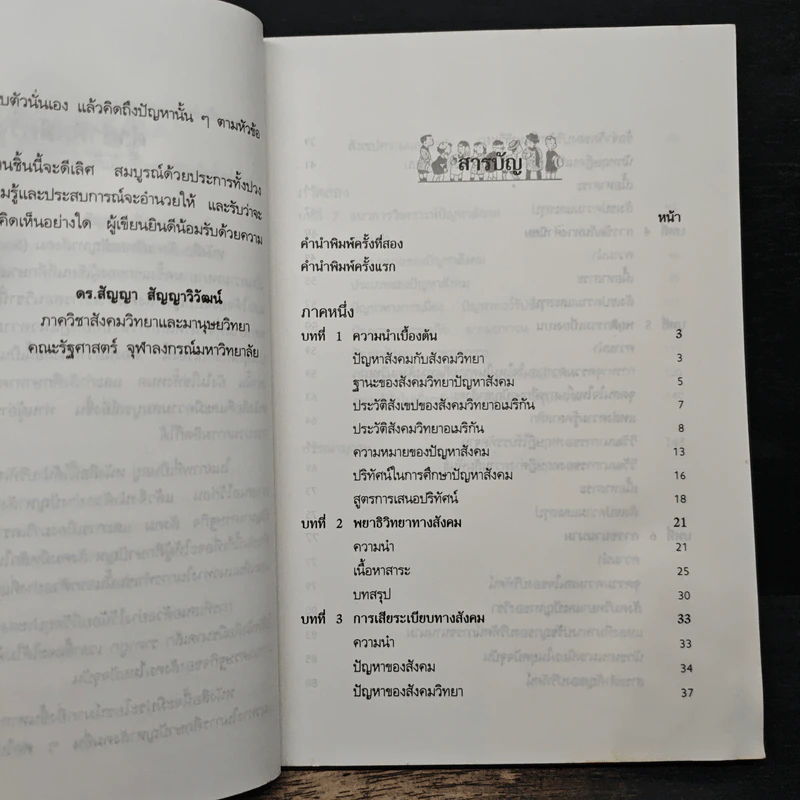 บตัวนั่นเอง แล้วคิดถึงปัญหานั้น ๆ ตามหัวข้อ
นชิ้นนี้จะดีเลิศ สมบูรณ์ด้วยประการทั้งปวง
มรู้และประสบการณ์จะอำนวยให้ และรับว่าจะ
คิดเห็นอย่างใด ผู้เขียนยินดีน้อมรับด้วยความ
ดร.สัญญา สัญญาวิวัฒน์
ภาควิชาสังคมวิทยาและมานุษยวิทยา
คณะรัฐศาสตร์ จุฬาลงกรณ์มหาวิทยาลัย
สารบัญ
หน้า
คำนำพิมพ์ครั้งที่สอง
คำนำพิมพ์ครั้งแรก
ภาคหนึ่ง
บทที่ 1 ความนำเบื้องต้น 3
ปัญหาสังคมกับสังคมวิทยา 3
ฐานะของสังคมวิทยาปัญหาสังคม 5
ประวัติสังเขปของสังคมวิทยาอเมริกัน 7
ประวัติสังคมวิทยาอเมริกัน 8
ความหมายของปัญหาสังคม 13
ปริทัศน์ในการศึกษาปัญหาสังคม 16
สูตรการเสนอปริทัศน์ 18
บทที่ 2 พยาธิวิทยาทางสังคม 21
ความนำ 21
เนื้อหาสาระ 25
บทสรุป 30
บทที่ 3 การเสียระเบียบทางสังคม 33
ความนำ 33
ปัญหาของสังคม 34
ปัญหาของสังคมวิทยา 37